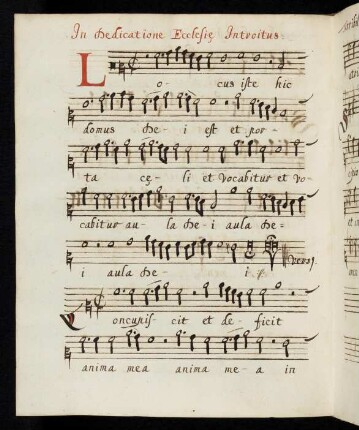 In Dedicatione Ecclesię Introitus
Lo- cus iste hic
domus De- i est et por-
ta cę- li et vocabitur et vo-
cabitur au- la De- i aula De-
i aula De- i.
Concupis- cit et de- ficit
anima mea anima me- a in